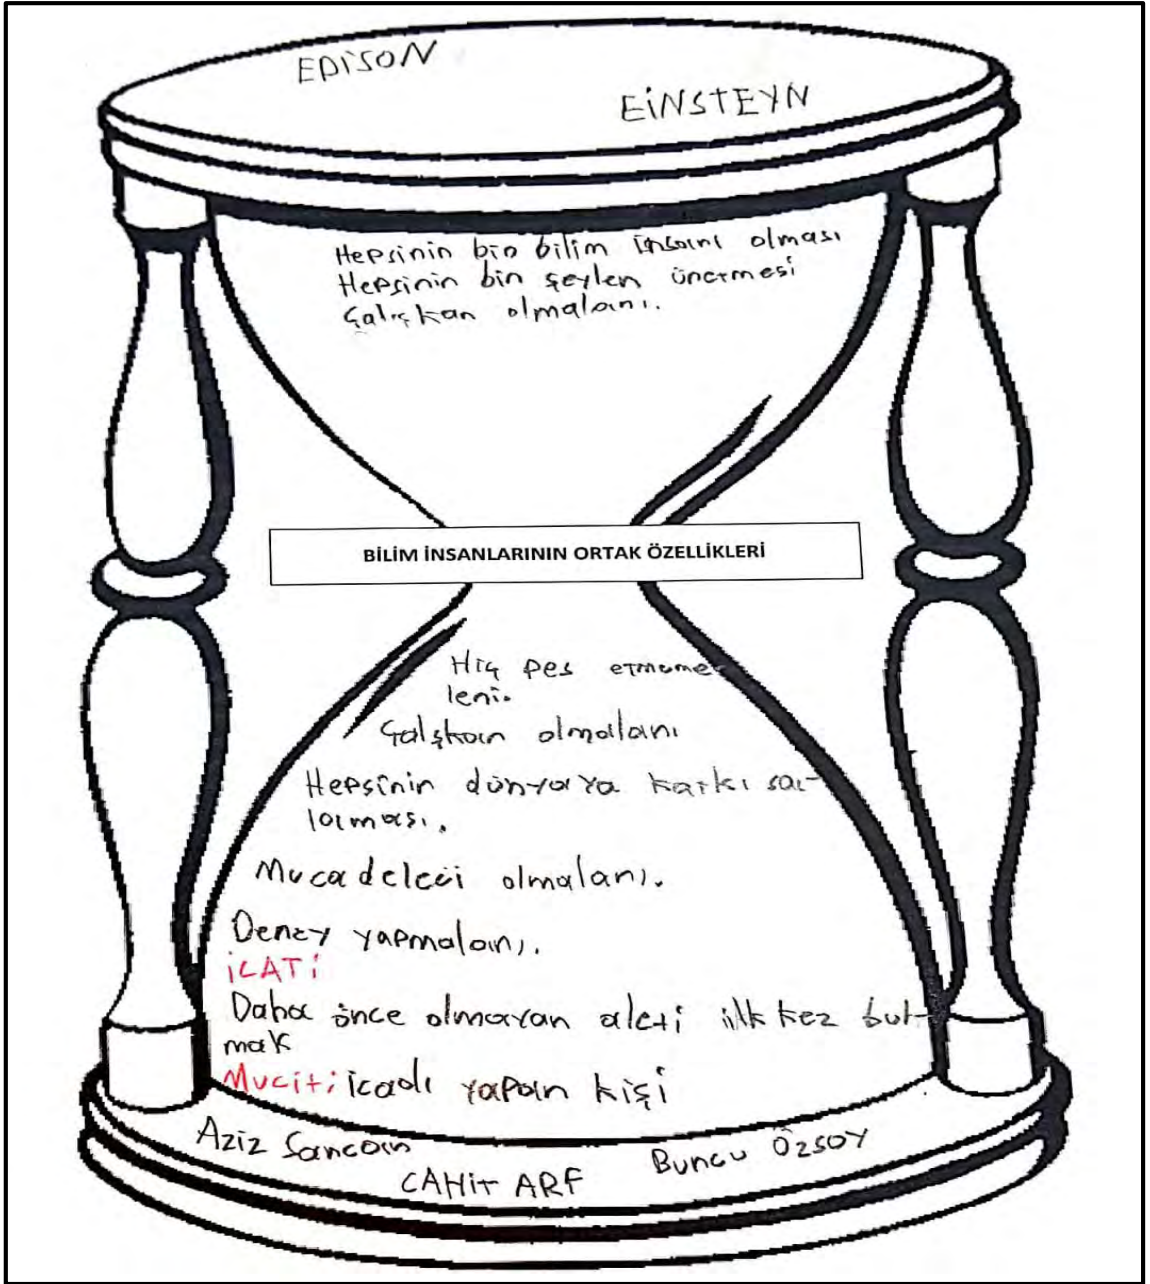 EDİSON
EİNSTEYN
Hepsinin bir bilim insanı olması
Hepsinin bir şeyler üretmesi
Çalışkan olmaları.
BİLİM İNSANLARININ ORTAK ÖZELLİKLERİ
Hiç pes etmeme-
leri.
Çalşkan olmaları
Hepsinin dünyaya katkı sağ-
laması.
Mucadeleci olmaları.
Deney yapmaları.
İCAT:
Daha önce olmayan aleti ilk kez bul-
mak
Mucit: icadı yapan kişi
Aziz Sancan
CAHİT ARF
Burcu Özsoy